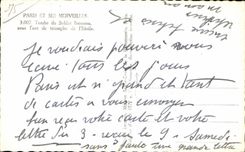 PARIS ET SES MERVEILLES
Tombe du Soldat Inconnu
sous l'arc de triomphe de l'Étoile.
Je voudrais pouvoir vous
écrire tous les jours
Paris est si grand et tant
de cartes a vous envoyer
reçu votre carte et votre
lettre du 3 - reçu le 9 - Samedi
sans faute une grande lettre